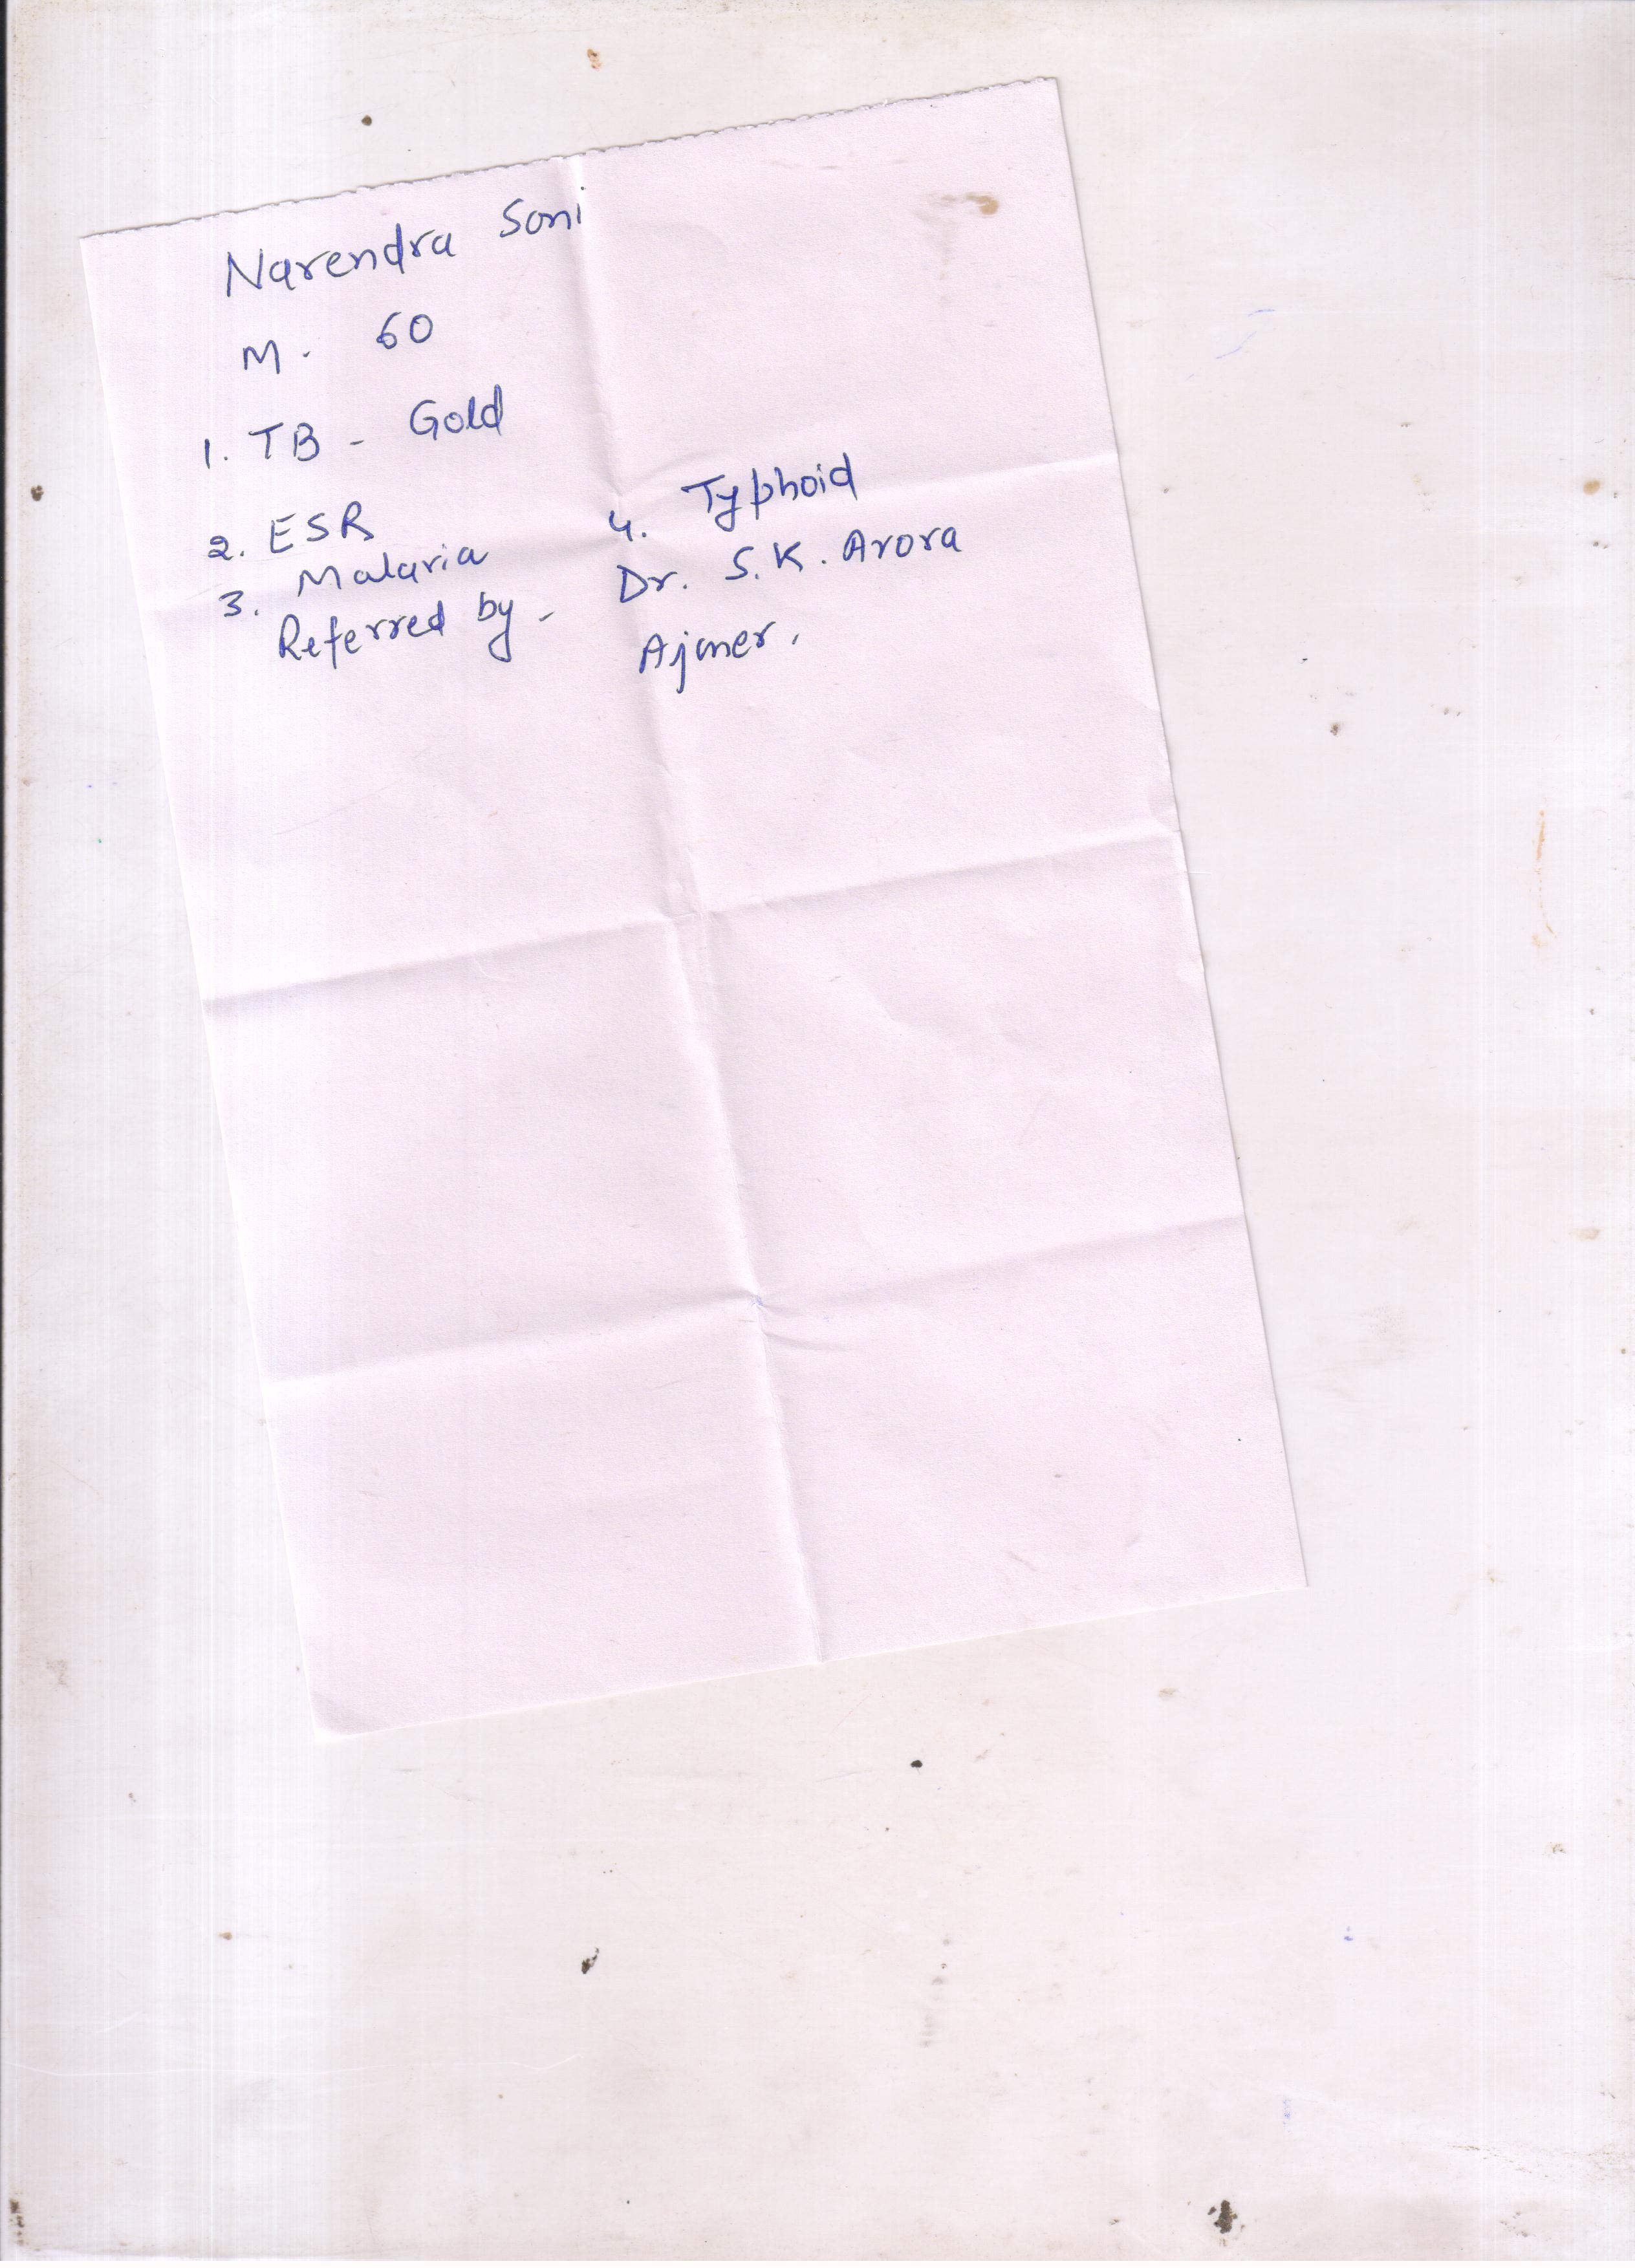 Narendra Soni
M. 60
1. TB - Gold
2. ESR
3. Malaria
4. Typhoid
Referred by - Dr. S.K. Arora
Ajmer.